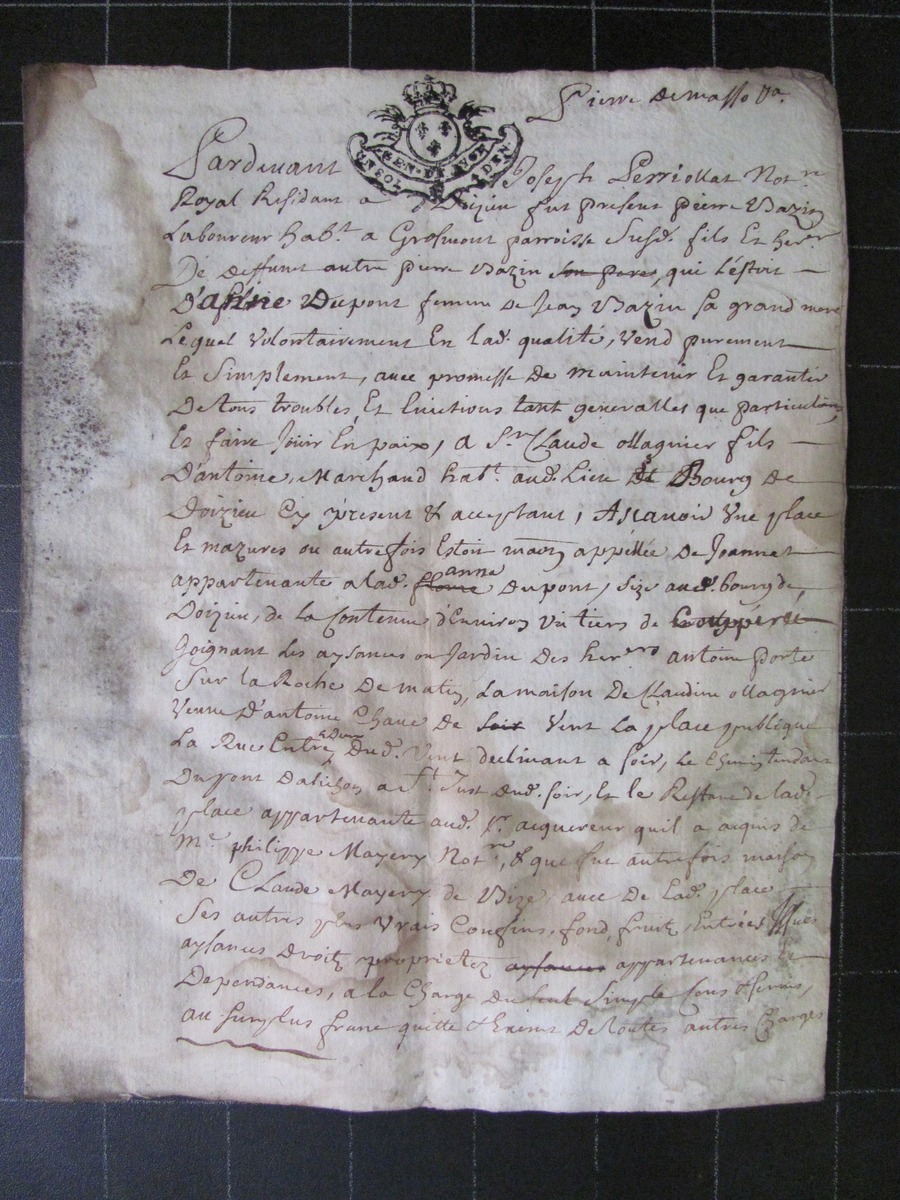 Pierre demasso
GEN. ET. LYON
UN SOL 4 DEN.
Pardevant Joseph Perriollat Not.re
Royal Residant a Doizieu fut present pierre Bazin
Laboureur hab.t a Grosmont parroisse Susd. fils Et her.er
De deffunct autre pierre Bazin son pere, qui L'estoit
D'anne Dupont femme de Jean Bazin sa grand mere
Lequel Volontairement En lad. qualité, vend purement
Et Simplement, avec promesse De maintenir Et garantir
De tous troubles, Et Evictions tant generalles que particulieres
Et faire Jouir En paix, a S.r Claude ollagnier fils
D'antoine, Marchand hab.t aud. Lieu Et Bourg de
Doizieu Cy present & acceptant, Ascavoir Une place
Et mazures ou autrefois Estoit maon appellée De Joannet
appartenante a lad. anne Dupont, size aud. bourg de
Doizieu, de la Contenue d'Environ Un tiers de Coupperée
Joignant les aysances ou Jardin des her.ers antoine porte
Sur la Roche De matin, La maison De Claudine ollagnier
Veuve D'antoine Chave De soir Vent La place publique
La Rue Entre deux Dud. Vent declinant a soir, Le Chemin tendant
Du pont a S.t Just dud. soir, Et le Restant de lad.
place appartenante aud. S.r acquereur quil a acquis de
M.e philippe Mayery Not.re, & que fut autrefois maison
De Claude Mayery de Bize, avec De Lad. place
Ses autres plus Vrais Confins, fond, fruitz, Entrées Issues
aysances Droitz proprietez aysances appartenances Et
Dependances, a la Charge Du seul Simple Cens & servis,
au Surplus franc quitte & Exempt De toutes autres Charges